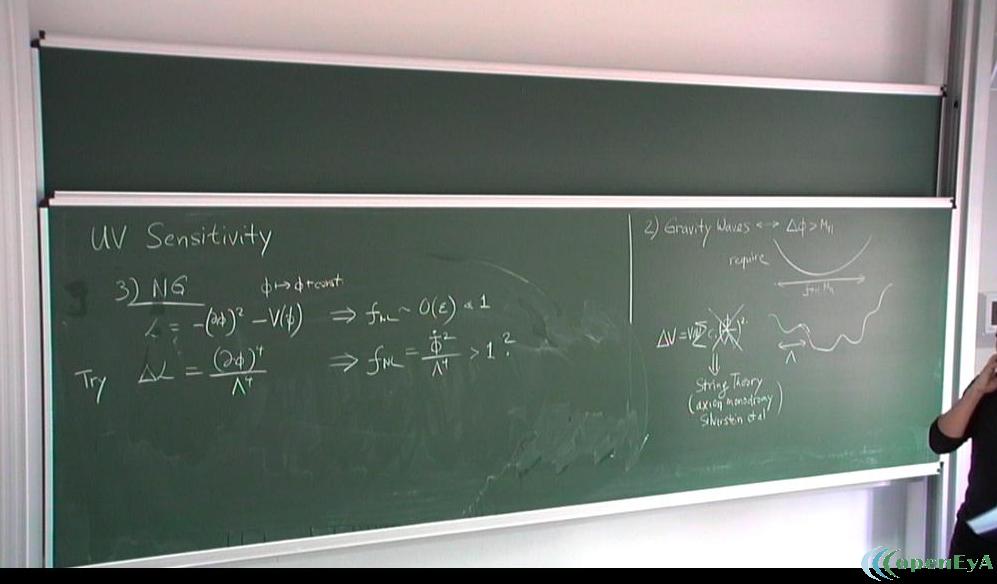 UV Sensitivity
3) NG
φ ↦ φ + const
L = -(∂φ)² - V(φ) ⇒ f_NL ~ O(ε) < 1
Try ΔL = (∂φ)⁴/Λ⁴ ⇒ f_NL = φ̇²/Λ⁴ > 1 ?
2) Gravity Waves ↔ Δφ > M_Pl
require
ΔV = V
Λ
⇓
String Theory
(axion monodromy
Silverstein et al)
openEyA